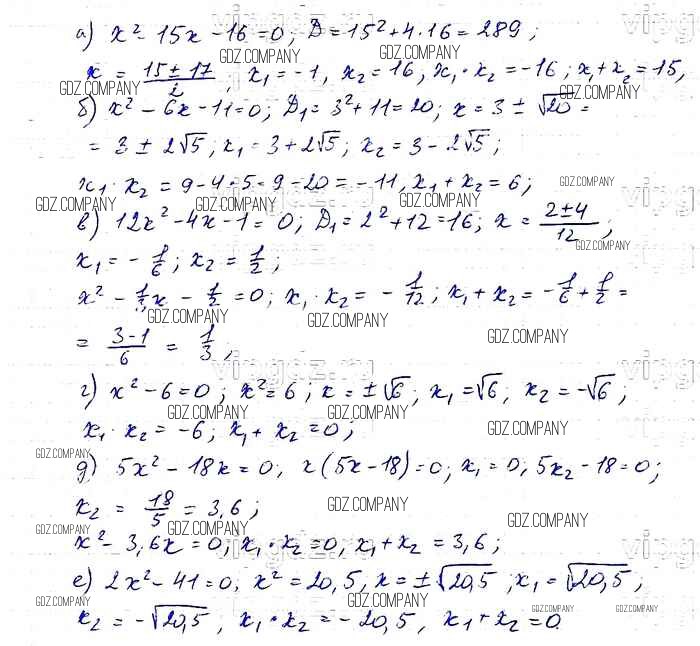 а) x² - 15x - 16 = 0; D = 15² + 4·16 = 289;
x = (15 ± 17)/2, x₁ = -1, x₂ = 16, x₁·x₂ = -16; x₁ + x₂ = 15,
б) x² - 6x - 11 = 0; D₁ = 3² + 11 = 20; x = 3 ± √20 =
= 3 ± 2√5; x₁ = 3 + 2√5; x₂ = 3 - 2√5;
x₁·x₂ = 9 - 4·5 = 9 - 20 = -11, x₁ + x₂ = 6;
в) 12x² - 4x - 1 = 0; D₁ = 2² + 12 = 16; x = (2 ± 4)/12;
x₁ = -1/6; x₂ = 1/2;
x² - 1/3x - 1/2 = 0; x₁·x₂ = -1/12; x₁ + x₂ = -1/6 + 1/2 =
= (3-1)/6 = 1/3;
г) x² - 6 = 0; x² = 6; x = ±√6, x₁ = √6, x₂ = -√6;
x₁·x₂ = -6; x₁ + x₂ = 0;
д) 5x² - 18x = 0; x(5x - 18) = 0; x₁ = 0, 5x₂ - 18 = 0;
x₂ = 18/5 = 3,6;
x² - 3,6x = 0; x₁·x₂ = 0, x₁ + x₂ = 3,6;
е) 2x² - 41 = 0; x² = 20,5, x = ±√20,5; x₁ = √20,5;
x₂ = -√20,5, x₁·x₂ = -20,5, x₁ + x₂ = 0.
GDZ.COMPANY
vipgdz.ru